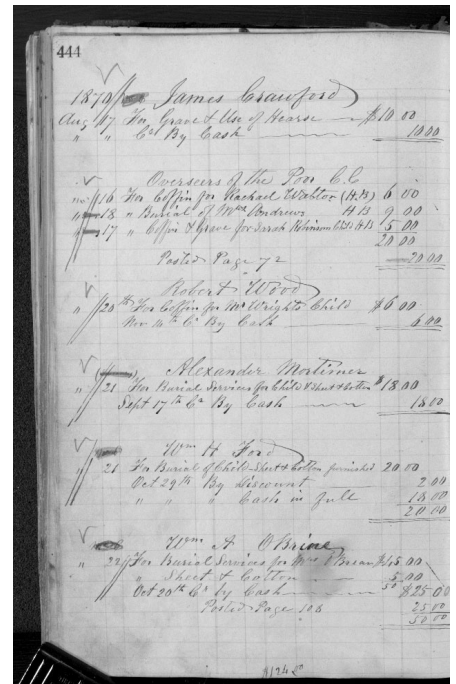 444
1870 James Crawford
Aug 17 For Grave & Use of Hearse $10 00
" " Cr By Cash 10 00
Overseers of the Poor C.C.
" 16 For Coffin for Rachael (H.B) 6 00
" 18 " Burial of Mrs Andrews H B 9 00
" 17 " Coffin & Grave for Sarah Robinson Child H B 5 00
20 00
Posted Page 72 20 00
Robert Wood
" 20th For Coffin for Mr Wrights Child $6 00
Nov 14th Cr By Cash 6 00
Alexander Mortimer
" 21 For Burial Services for Child & Sheet & Cotton $18.00
Sept 17th Cr By Cash 18 00
Wm H Ford
" 21 For Burial of Child Sheet & Cotton furnished 20 00
Oct 29th By Discount 2 00
" " " Cash in full 18 00
20 00
Wm A OBrine
" 22 For Burial Services for Mrs OBrian $45.00
" Sheet & Cotton 5 00
Oct 20th Cr by Cash 50 $25 00
Posted Page 106 25 00
50 00